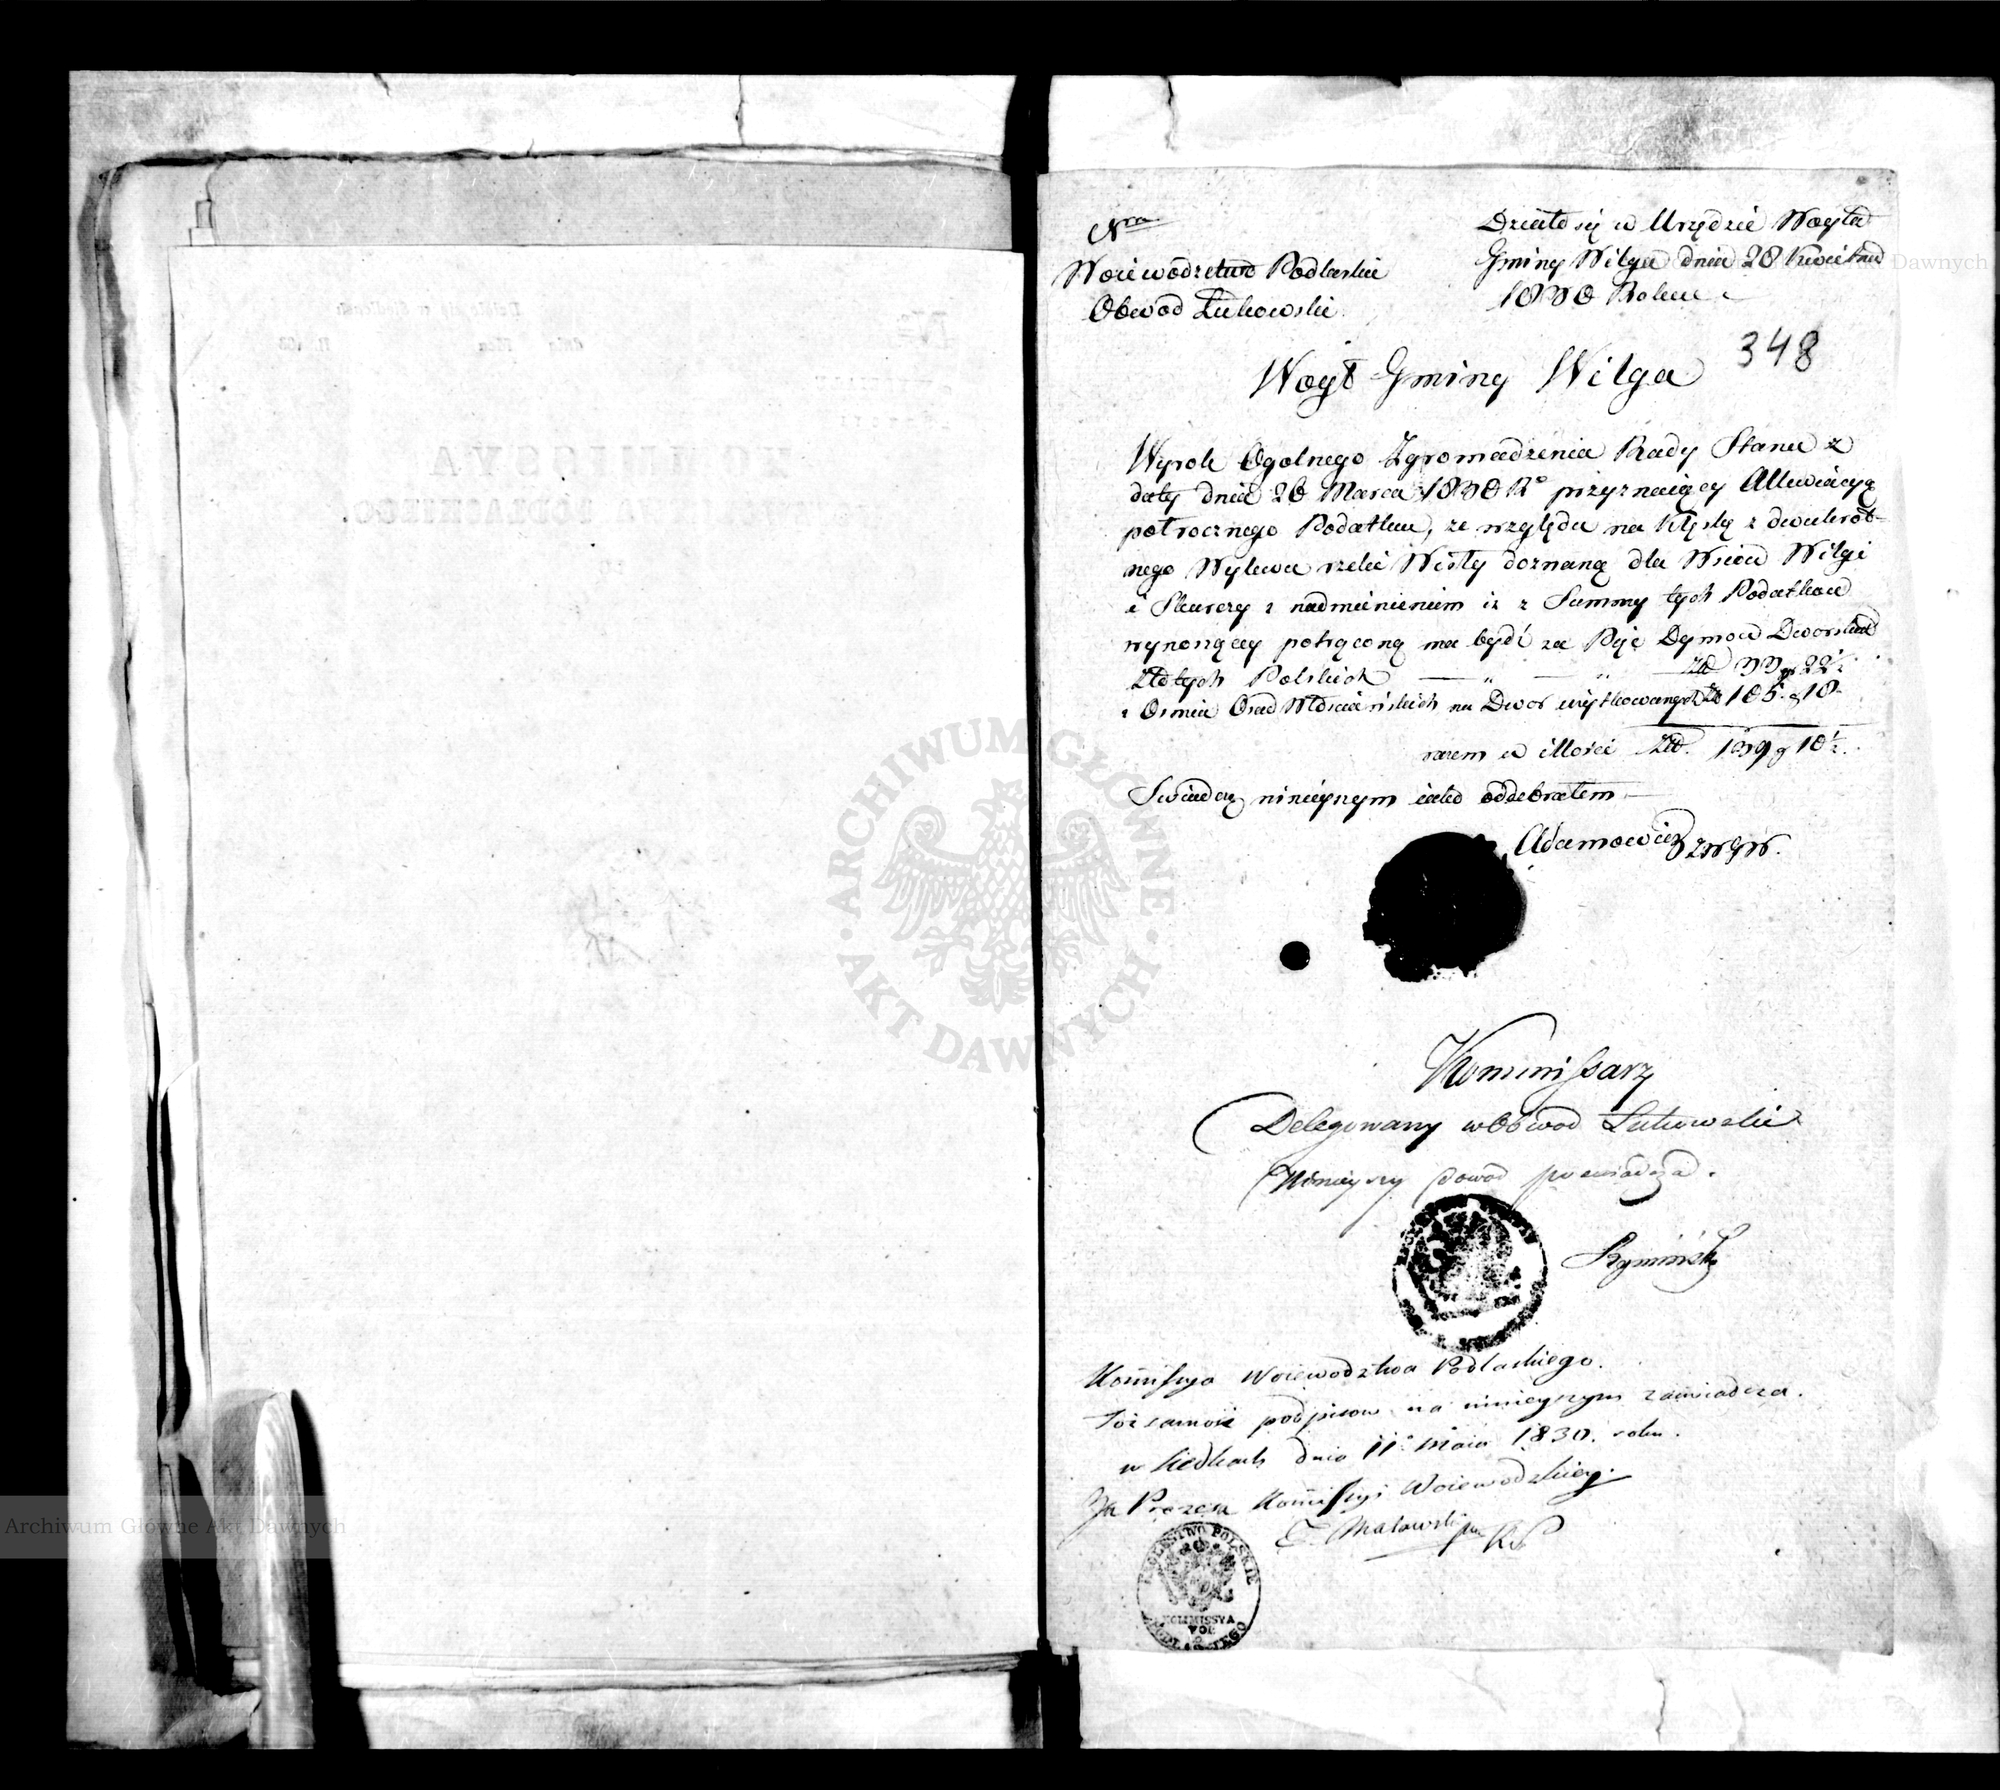 Nra
Woiewodztwo Podlaskie
Obwod Łukowski
Działo się w Urzędzie Woyta
Gminy Wilga dnia 28 Kwietnia
1830 Roku
348
Woyt Gminy Wilga
Wyrok Ogolnego Zgromadzenia Rady Stanu z
daty dnia 26 Marca 1830 Ro przyznaiący Allewiacyą
potrocznego Podatku, ze względu na Klęskę z dwukrot-
nego Wylewu rzeki Wisły doznaną dla Wsiow Wilgi
i Skurczy z nadmienieniem iz z Summy tych Podatkow
wynoszący potrąconą ma bydź za Dymow Dworskich
Złotych Polskich — " — " — Zł 33 g 22½
z Osmiu Osad Włosciańskich na Dwor użytkowanych Zł 105 g 18
razem w illości Złt. 139 g 10½
Swiadczę ninieyszym iako oddebrałem —
Adamowicz ZWGW.
Kommissarz
Delegowany w Obwod Łukowski
Ninieyszy dowod poswiadcza.
Kommissya Woiewodztwa Podlaskiego.
Tożsamość podpisow na ninieyszym zaswiadcza.
w Siedlcach dnia 11o Maia 1830. roku.
Za Prezesa Kommissyi Woiewodzkiey.
KROLESTWO POLSKIE
KOMMISSYA
WOJ:
ARCHIWUM GŁÓWNE
AKT DAWNYCH
Archiwum Główne Akt Dawnych